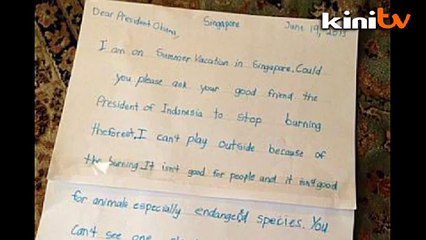 kinitv
Dear President Obama, Singapore June 19, 2013
I am on Summer Vacation in Singapore. Could
you please ask your good friend the
President of Indonesia to stop burning
theforest, I can't play outside because of
the burning. It isn't good for people and it isn't good
for animals especially endangerd species. You
Can't see one